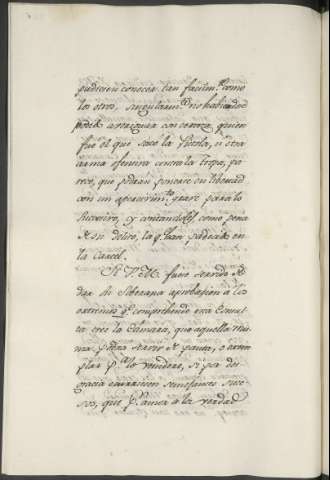 pudieron conocer tan facilm.te como
los otros, singularm.te no habiendose
podido averiguar con certeza quien
fué el que sacó la Pistola, u otra
arma ofensiva contra la Tropa, pa-
rece, que podrán ponerse en libertad
con un apercevim.to grave para lo
succesivo, y contandoles como pena
de su delito, la q.e han padecido en
la Carcel.
Si V.M. fuere servido de
dar su Soberana aprobacion a los
extremos q.e comprehende esta Consul-
ta cree la Camara, que aquella mis-
ma podrá servir de pauta, o exem-
plar p.a lo venidero, si por des-
gracia ocurriesen semejantes suce-
sos, que p.r a la verdad